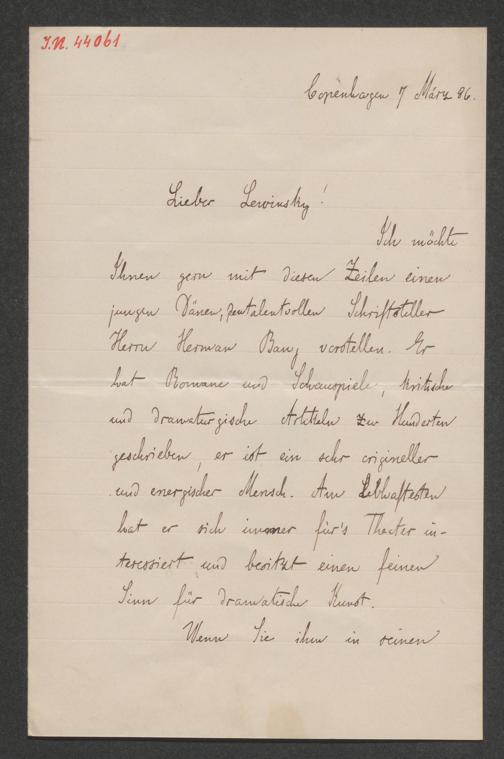 I.N. 44061
Copenhagen 7 März 86.
Lieber Lewinsky!
Ich möchte
Ihnen gern mit diesen Zeilen einen
jungen Dänen, den talentvollen Schriftsteller
Herrn Herman Bang vorstellen. Er
hat Romane und Schauspiele, kritische
und dramaturgische Artikeln zu Hunderten
geschrieben, er ist ein sehr origineller
und energischer Mensch. Am Lebhaftesten
hat er sich immer für's Theater in-
teressiert und besitzt einen feinen
Sinn für dramatische Kunst.
Wenn Sie ihm in seinen